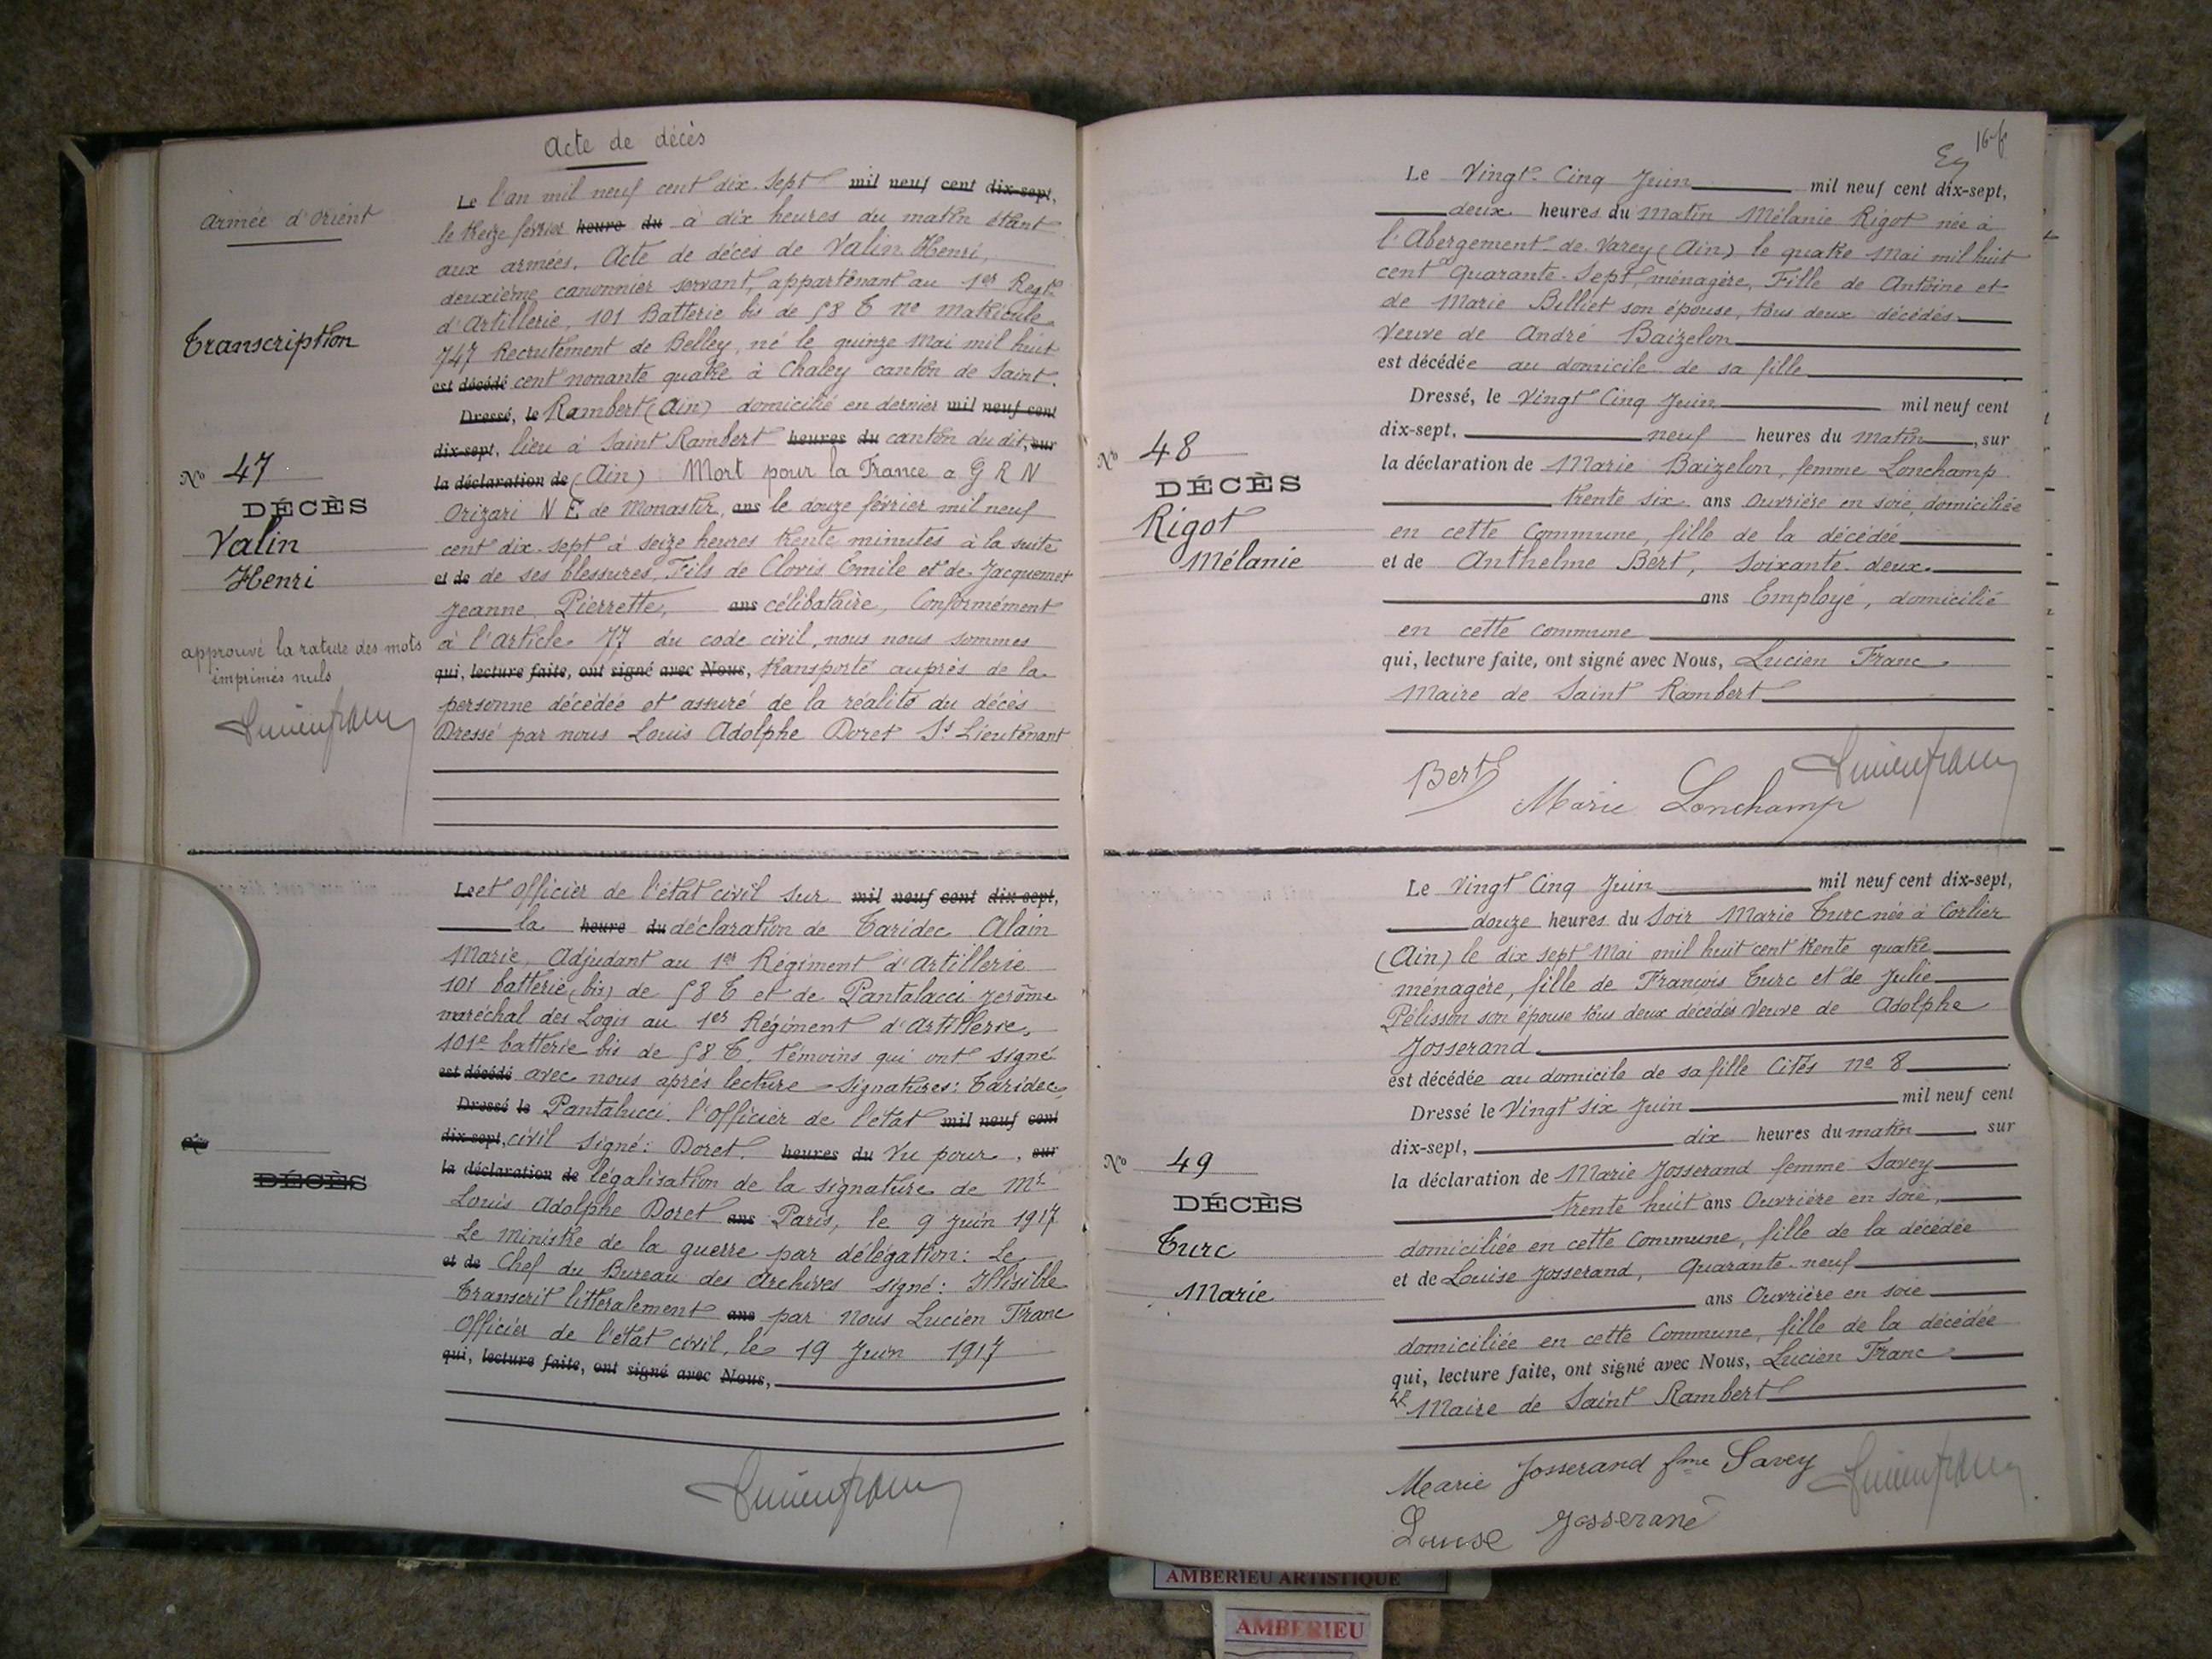 Acte de décès
Armée d'Orient
Transcription
No 47
DÉCÈS
Valin
Henri
approuvé la rature des mots
imprimés nuls
Le l'an mil neuf cent dix-sept mil neuf cent dix-sept,
le treize février heure du à dix heures du matin étant
aux armées. Acte de décès de Valin Henri,
deuxième canonnier servant, appartenant au 1er Regt
d'Artillerie, 101 Batterie bis de 58 T no matricule
747 Recrutement de Belley, né le quinze Mai mil huit
est décédé cent nonante quatre à Chaley canton de Saint-
Dressé, le Rambert (Ain) domicilié en dernier mil neuf cent
dix-sept, lieu à Saint Rambert heures du canton du dit, sur
la déclaration de (Ain) Mort pour la France a G R N
Orizari N E de Monastir, ans le douze février mil neuf
cent dix-sept à seize heures trente minutes à la suite
et de de ses blessures, Fils de Clovis Emile et de Jacquemet
Jeanne, Pierrette, ans célibataire, Conformément
à l'article 77 du code civil, nous nous sommes
qui, lecture faite, ont signé avec Nous, transporté auprès de la
personne décédée et assuré de la réalité du décès
Dressé par nous Louis Adolphe Doret St Lieutenant
DÉCÈS
Le et Officier de l'état civil sur mil neuf cent dix-sept,
la heure du déclaration de Taridec Alain
Marie, Adjudant au 1er Régiment d'Artillerie
101 batterie (bis) de 58 T et de Pantalacci Jerôme
maréchal des Logis au 1er Régiment d'Artillerie,
101e batterie bis de 58 T. témoins qui ont signé
est décédé avec nous après lecture - Signatures: Taridec,
Dressé le Pantalucci l'Officier de l'état mil neuf cent
dix-sept, civil signé: Doret. heures du Vu pour, sur
la déclaration de légalisation de la signature de Mr
Louis Adolphe Doret ans Paris, le 9 Juin 1917
Le Ministre de la guerre par délégation: Le
et de Chef du Bureau des Archives signé: Illisible
Transcrit littéralement ans par Nous Lucien Franc
Officier de l'état civil, le 19 Juin 1917
qui, lecture faite, ont signé avec Nous,
No 48
DÉCÈS
Rigot
Mélanie
Le Vingt-Cinq Juin mil neuf cent dix-sept,
deux heures du Matin Mélanie Rigot née à
l'Abergement-de-Varey (Ain) le quatre Mai mil huit
cent quarante-sept, ménagère, Fille de Antoine et
de Marie Billiet son épouse, tous deux décédés
Veuve de André Baizelon
est décédée au domicile de sa fille
Dressé, le Vingt Cinq Juin mil neuf cent
dix-sept, neuf heures du matin, sur
la déclaration de Marie Baizelon, femme Lonchamp
trente six ans Ouvrière en soie, domiciliée
en cette Commune, fille de la décédée
et de Anthelme Bert, Soixante-deux
ans Employé, domicilié
en cette commune
qui, lecture faite, ont signé avec Nous, Lucien Franc
Maire de Saint Rambert
Bert
Marie Lonchamp
No 49
DÉCÈS
Turc
Marie
Le Vingt Cinq Juin mil neuf cent dix-sept,
douze heures du Soir Marie Turc née à Corlier
(Ain) le dix sept Mai mil huit cent trente quatre
ménagère, fille de François Turc et de Julie
Pélisson son épouse tous deux décédés Veuve de Adolphe
Josserand
est décédée au domicile de sa fille Cités no 8
Dressé le Vingt six Juin mil neuf cent
dix-sept, dix heures du matin, sur
la déclaration de Marie Josserand femme Savey
trente huit ans Ouvrière en soie,
domiciliée en cette Commune, fille de la décédée
et de Louise Josserand, Quarante-neuf
ans Ouvrière en soie
domiciliée en cette Commune, fille de la décédée
qui, lecture faite, ont signé avec Nous, Lucien Franc
Maire de Saint Rambert
Marie Josserand fme Savey
Louise Josserand
AMBERIEU ARTISTIQUE
AMBERIEU